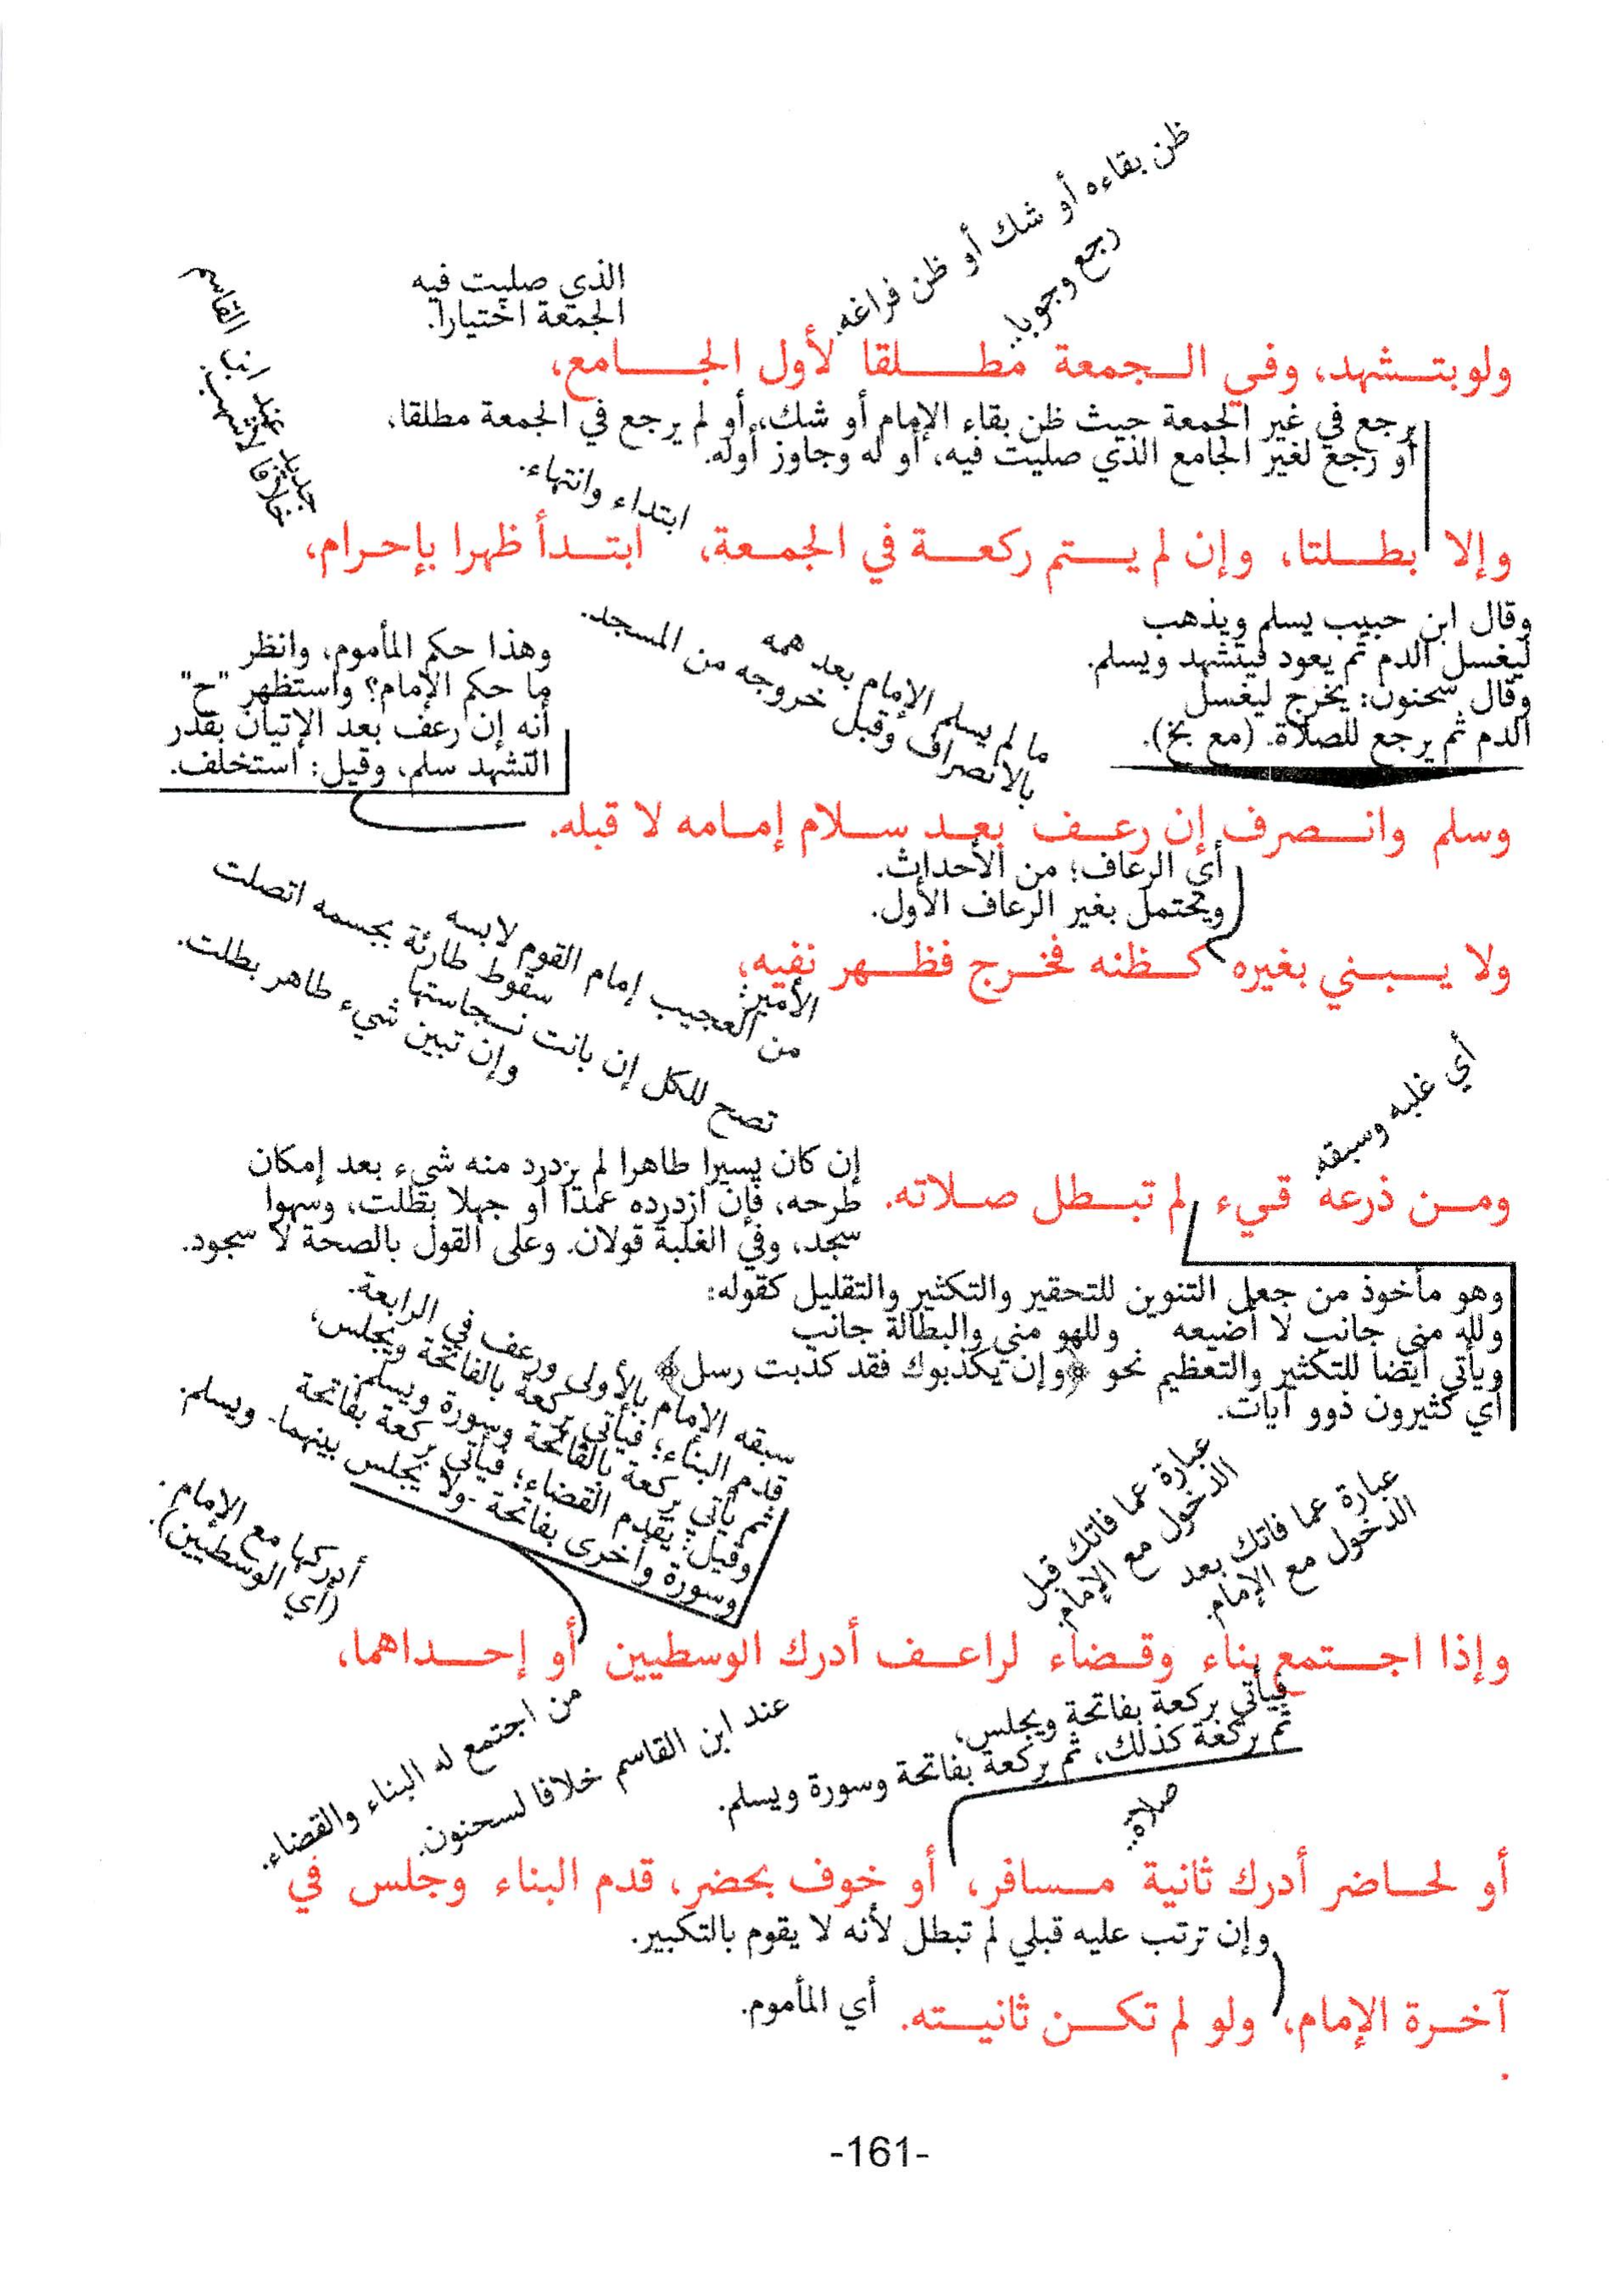 ظن بقاءه أو شك أو ظن فراغه.
رجع وجوبا.
الذي صليت فيه
الجمعة اختيارا.
جديد عند ابن القاسم
خلافا لأشهب.
ولو بتشهد، وفي الجمعة مطلقا لأول الجامع،
يرجع في غير الجمعة حيث ظن بقاء الإمام أو شك، أو لم يرجع في الجمعة مطلقا،
أو رجع لغير الجامع الذي صليت فيه، أو له وجاوز أوله.
ابتداء وانتهاء.
وإلا بطلتا، وإن لم يتم ركعة في الجمعة، ابتدأ ظهرا بإحرام،
وقال ابن حبيب يسلم ويذهب
ليغسل الدم ثم يعود فيتشهد ويسلم.
وقال سحنون: يخرج ليغسل
الدم ثم يرجع للصلاة. (مع بخ).
ما لم يسلم الإمام بعد همه
بالانصراف وقبل خروجه من المسجد.
وهذا حكم المأموم، وانظر
ما حكم الإمام؟ واستظهر "ح"
أنه إن رعف بعد الإتيان بقدر
التشهد سلم، وقيل: استخلف.
وسلم وانصرف إن رعف بعد سلام إمامه لا قبله.
أي الرعاف؛ من الأحداث.
ويحتمل بغير الرعاف الأول.
ولا يبني بغيره كظنه فخرج فظهر نفيه،
الأمير:
من العجيب إمام القوم لابسه
سقوط طارئة بجسمه اتصلت
تصح للكل إن بانت نجاستها
وإن تبين شيء طاهر بطلت.
أي غلبه وسبقه
ومن ذرعه قيء لم تبطل صلاته.
إن كان يسيرا طاهرا لم يزدرد منه شيء بعد إمكان
طرحه، فإن ازدرده عمدا أو جهلا بطلت، وسهوا
سجد، وفي الغلبة قولان. وعلى القول بالصحة لا سجود.
وهو مأخوذ من جعل التنوين للتحقير والتكثير والتقليل كقوله:
ولله مني جانب لا أضيعه وللهو مني والبطالة جانب
ويأتي أيضا للتكثير والتعظيم نحو ﴿وإن يكذبوك فقد كذبت رسل﴾
أي كثيرون ذوو آيات.
سبقه الإمام بالأولى ورعف في الرابعة.
قدم البناء؛ فيأتي بركعة بالفاتحة ويجلس،
ثم يأتي بركعة بالفاتحة وسورة ويسلم.
وقيل: يقدم القضاء؛ فيأتي بركعة بفاتحة
وسورة وأخرى بفاتحة -ولا يجلس بينهما- ويسلم.
أدركها مع الإمام.
(أي الوسطيين).
عبارة عما فاتك قبل
الدخول مع الإمام.
عبارة عما فاتك بعد
الدخول مع الإمام.
وإذا اجتمع بناء وقضاء لراعف أدرك الوسطيين أو إحداهما،
فيأتي بركعة بفاتحة ويجلس،
ثم بركعة كذلك، ثم بركعة بفاتحة وسورة ويسلم.
عند ابن القاسم خلافا لسحنون.
من اجتمع له البناء والقضاء.
صلاة.
أو لحاضر أدرك ثانية مسافر، أو خوف بحضر، قدم البناء وجلس في
وإن ترتب عليه قبلي لم تبطل لأنه لا يقوم بالتكبير.
آخرة الإمام، ولو لم تكن ثانيته.
أي المأموم.
-161-